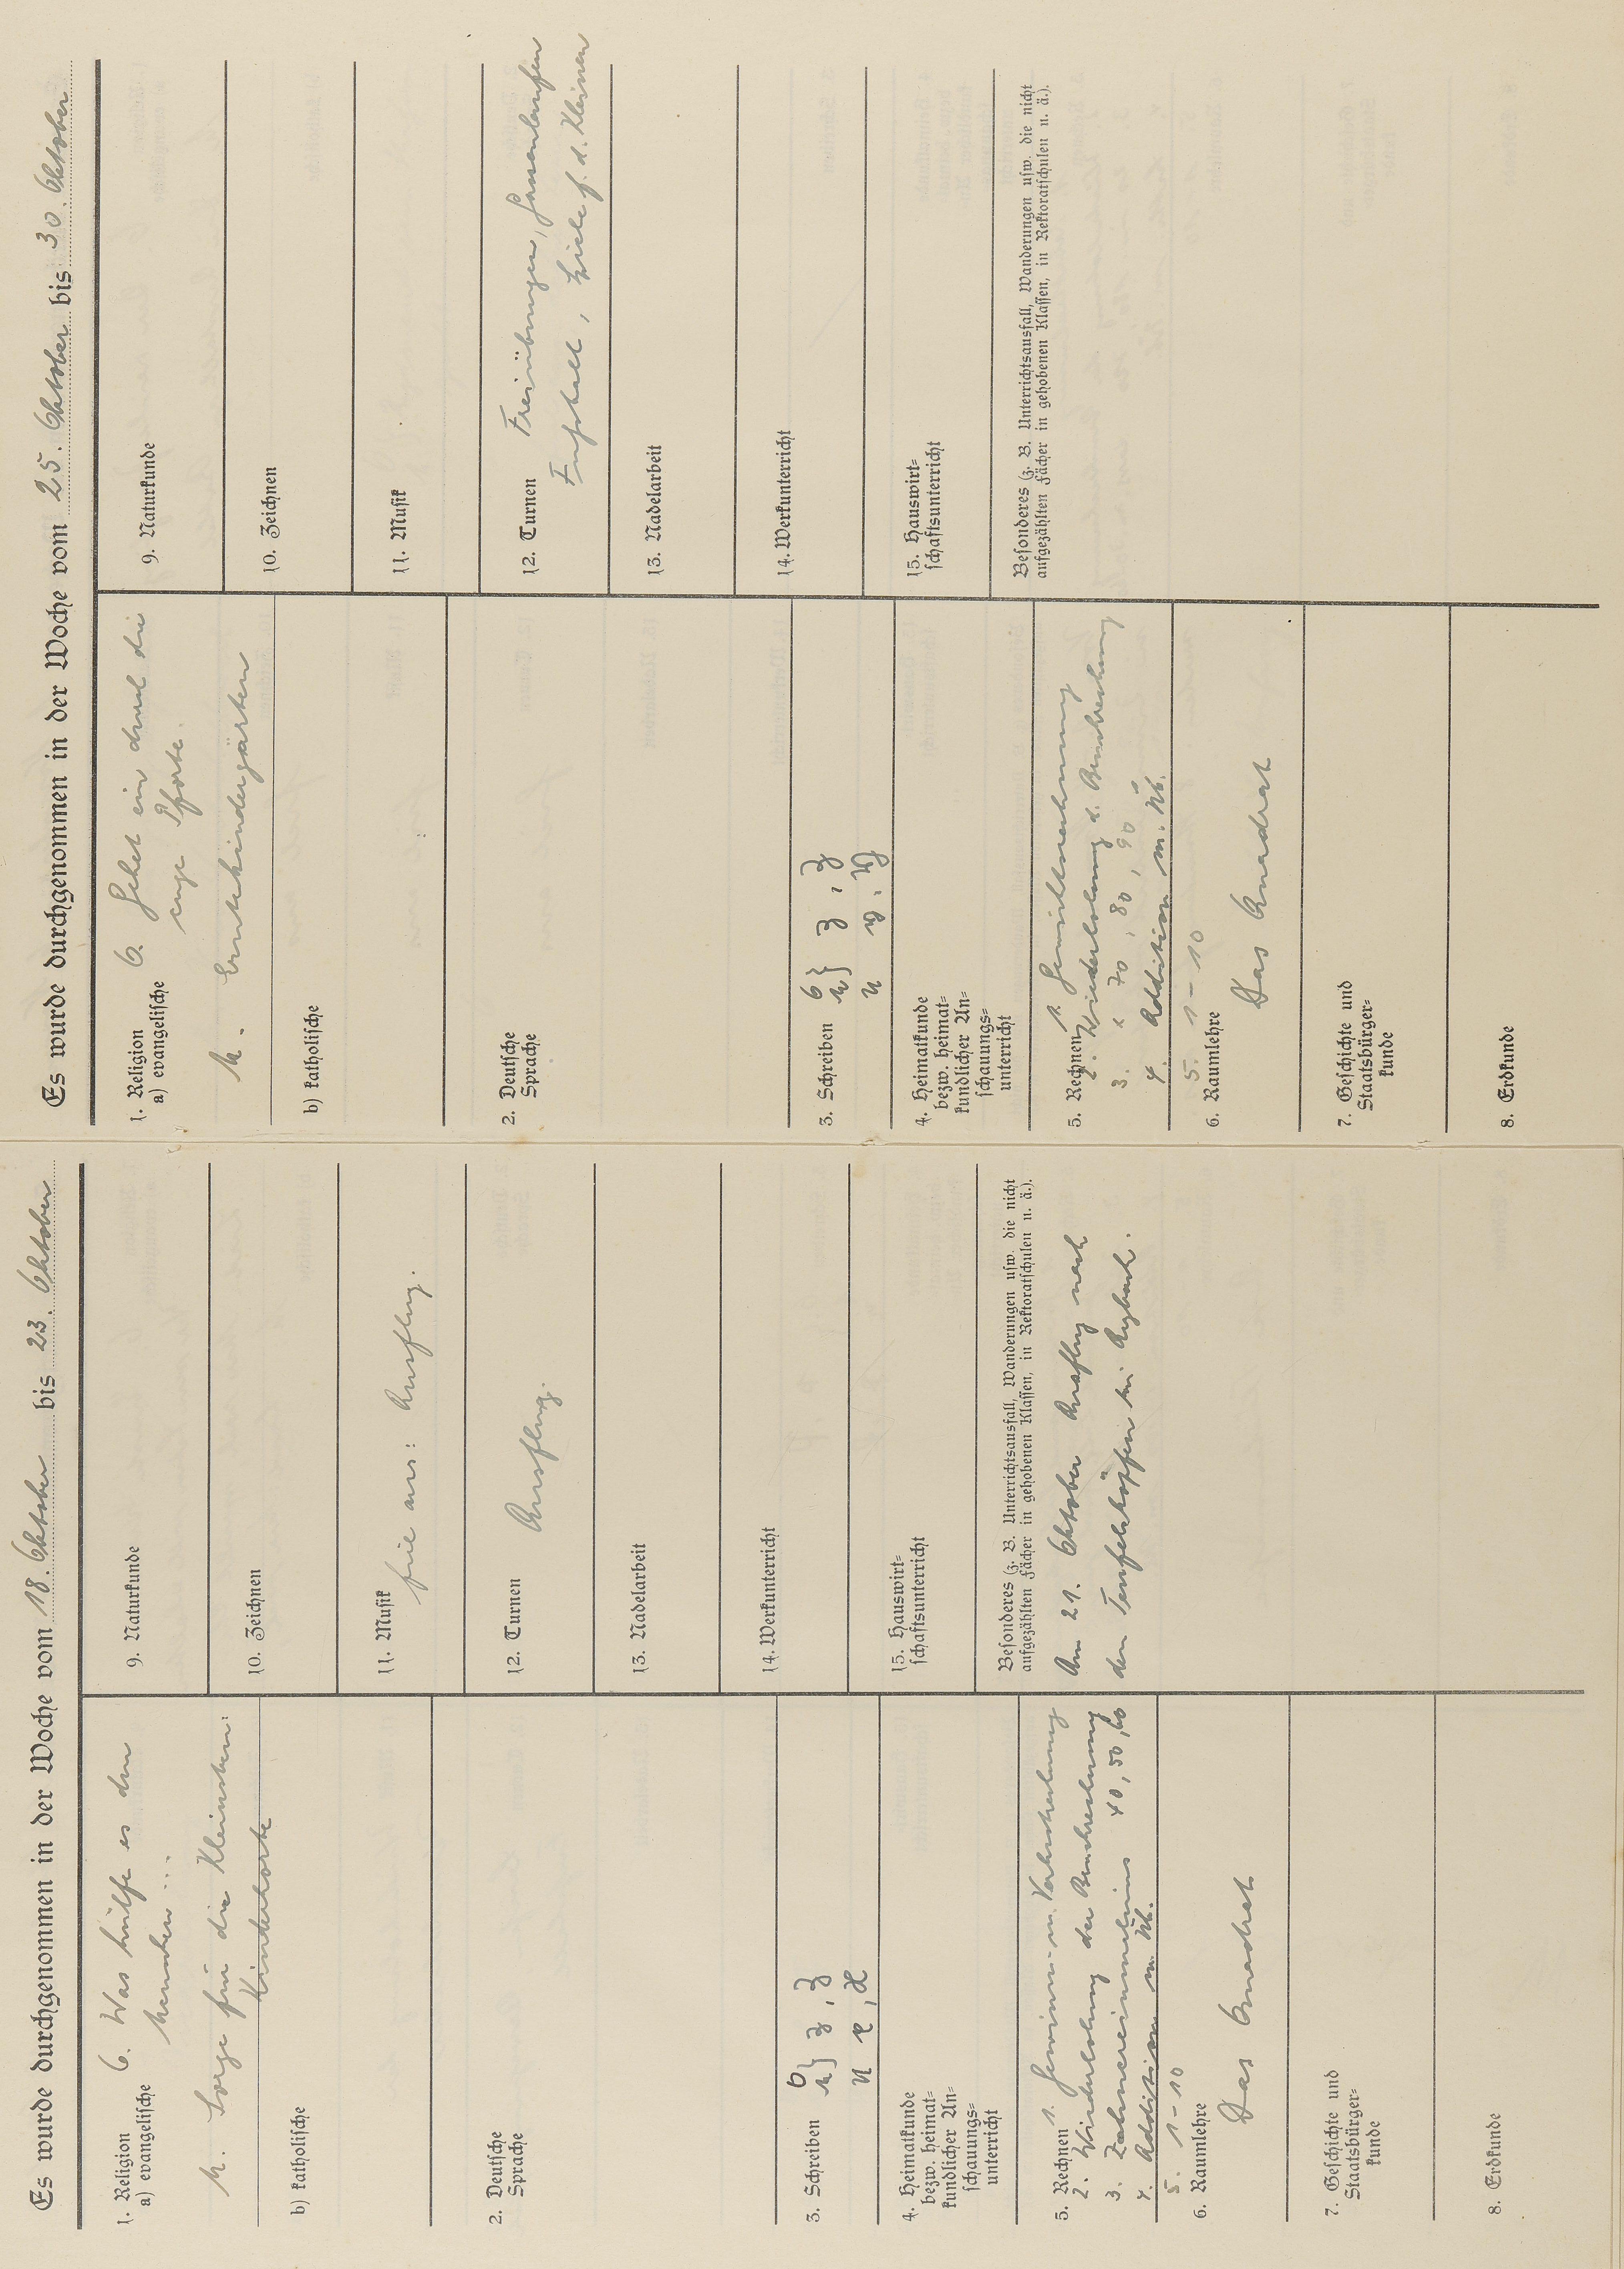 Es wurde durchgenommen in der Woche vom 18. Oktober bis 23. Oktober
1. Religion
a) evangelische
O. Was hülfe es dem
Menschen ...
M. Sorge für die Kleinsten:
Kinderhorte
b) katholische
2. Deutsche
Sprache
3. Schreiben
O
M } z, Z
U x, X
4. Heimatkunde
bezw. heimat-
kundlicher An-
schauungs-
unterricht
5. Rechnen 1. Gewinn- u. Verlustrechnung
2. Wiederholung der Bruchrechnung
3. Zehnereinmaleins 40, 50, 60
4. Addition m. Üb.
5. 1-10
6. Raumlehre
Das Quadrat
7. Geschichte und
Staatsbürger-
kunde
8. Erdkunde
9. Naturkunde
10. Zeichnen
11. Musik
fiel aus: Ausflug.
12. Turnen
Ausflug.
13. Nadelarbeit
14. Werkunterricht
15. Hauswirt-
schaftsunterricht
Besonderes (z. B. Unterrichtsausfall, Wanderungen usw. die nicht
aufgezählten Fächer in gehobenen Klassen, in Rektoratschulen u. ä.).
Am 21. Oktober Ausflug nach
den Teufelsköpfen bei
Es wurde durchgenommen in der Woche vom 25. Oktober bis 30. Oktober
1. Religion
a) evangelische
O. Gehet ein durch die
enge Pforte.
M. Erntekindergärten
b) katholische
2. Deutsche
Sprache
3. Schreiben
O
M } z, Z
U
4. Heimatkunde
bezw. heimat-
kundlicher An-
schauungs-
unterricht
5. Rechnen 1. Gewichtsrechnung
2. Wiederholung d. Bruchrechnung
3. x 70, 80, 90
4. Addition m. Üb.
5. 1-10
6. Raumlehre
Das Quadrat
7. Geschichte und
Staatsbürger-
kunde
8. Erdkunde
9. Naturkunde
10. Zeichnen
11. Musik
12. Turnen
Freiübungen, Gassenlaufen
Fußball, Spiele f. d. Kleinen
13. Nadelarbeit
14. Werkunterricht
15. Hauswirt-
schaftsunterricht
Besonderes (z. B. Unterrichtsausfall, Wanderungen usw. die nicht
aufgezählten Fächer in gehobenen Klassen, in Rektoratschulen u. ä.).